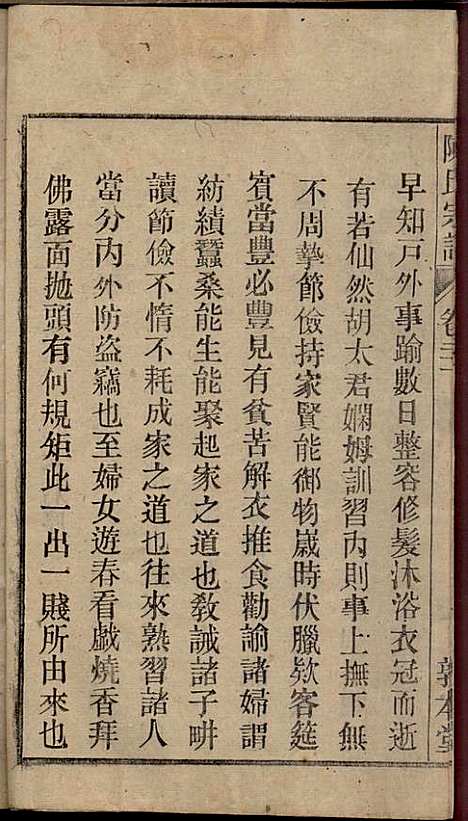 陳氏宗譜 卷 敦本堂
早知戸外事踰數日整容修髮沐浴衣冠而逝
有若仙然胡太君嫻姆訓習內則事上撫下無
不周摯節儉持家賢能御物歲時伏臘欵客筵
賓當豐必豐見有貧苦解衣推食勸諭諸婦謂
紡績蠶桑能生能聚起家之道也敎誡諸子畊
讀節儉不惰不耗成家之道也往來熟習諸人
當分內外防盜竊也至婦女遊春看戱燒香拜
佛露面拋頭有何規矩此一出一賤所由來也